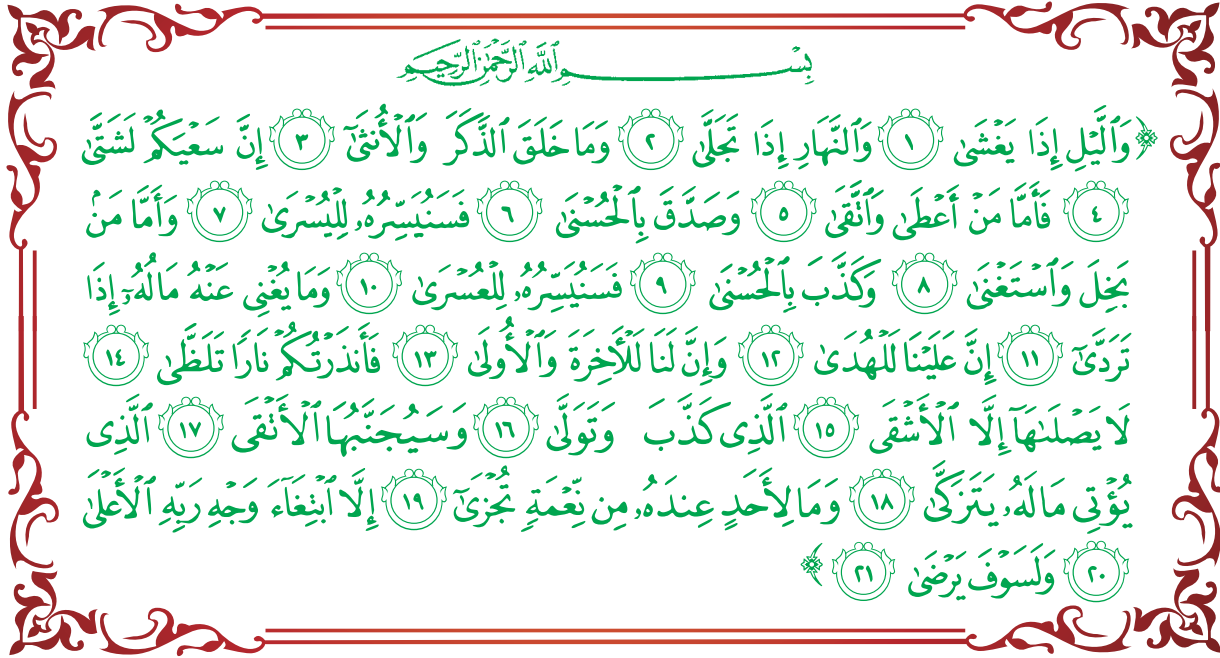 بِسْمِ اللَّهِ الرَّحْمَٰنِ الرَّحِيمِ
﴿وَٱلَّيْلِ إِذَا يَغْشَىٰ ١ وَٱلنَّهَارِ إِذَا تَجَلَّىٰ ٢ وَمَا خَلَقَ ٱلذَّكَرَ وَٱلْأُنثَىٰٓ ٣ إِنَّ سَعْيَكُمْ لَشَتَّىٰ
٤ فَأَمَّا مَنْ أَعْطَىٰ وَٱتَّقَىٰ ٥ وَصَدَّقَ بِٱلْحُسْنَىٰ ٦ فَسَنُيَسِّرُهُۥ لِلْيُسْرَىٰ ٧ وَأَمَّا مَنۢ
بَخِلَ وَٱسْتَغْنَىٰ ٨ وَكَذَّبَ بِٱلْحُسْنَىٰ ٩ فَسَنُيَسِّرُهُۥ لِلْعُسْرَىٰ ١٠ وَمَا يُغْنِى عَنْهُ مَالُهُۥٓ إِذَا
تَرَدَّىٰٓ ١١ إِنَّ عَلَيْنَا لَلْهُدَىٰ ١٢ وَإِنَّ لَنَا لَلْأٓخِرَةَ وَٱلْأُولَىٰ ١٣ فَأَنذَرْتُكُمْ نَارًا تَلَظَّىٰ ١٤
لَا يَصْلَىٰهَآ إِلَّا ٱلْأَشْقَى ١٥ ٱلَّذِى كَذَّبَ وَتَوَلَّىٰ ١٦ وَسَيُجَنَّبُهَا ٱلْأَتْقَى ١٧ ٱلَّذِى
يُؤْتِى مَالَهُۥ يَتَزَكَّىٰ ١٨ وَمَا لِأَحَدٍ عِندَهُۥ مِن نِّعْمَةٍ تُجْزَىٰٓ ١٩ إِلَّا ٱبْتِغَآءَ وَجْهِ رَبِّهِ ٱلْأَعْلَىٰ
٢٠ وَلَسَوْفَ يَرْضَىٰ ٢١﴾